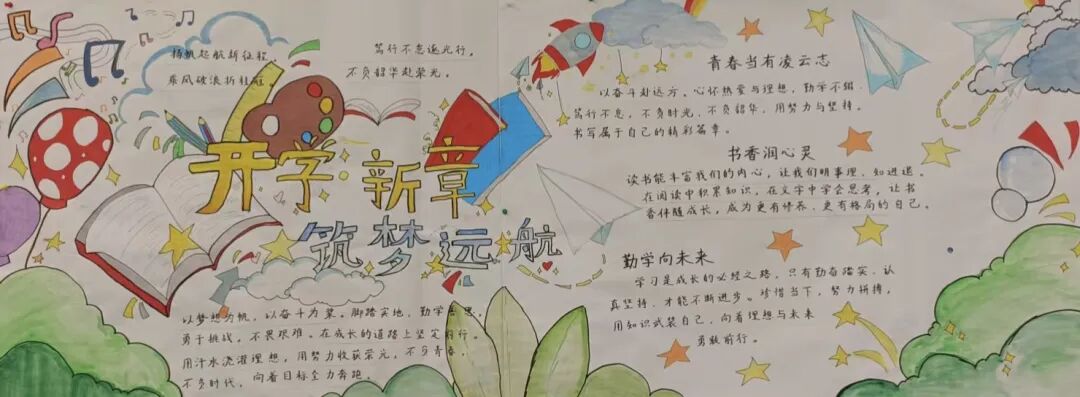 扬帆起航新征程
乘风破浪折桂冠
笃行不怠逐光行。
不负韶华赴荣光。
开学·新章
筑梦远航
以梦想为帆，以奋斗为桨。脚踏实地，勤学善思，
勇于挑战，不畏艰难。在成长的道路上坚定前行。
用汗水浇灌理想，用努力收获荣光，不负青春，
不负时代，向着目标全力奔跑。
青春当有凌云志
以奋斗赴远方，心怀热爱与理想，勤学不辍、
笃行不怠，不负时光、不负韶华，用努力与坚持。
书写属于自己的精彩篇章。
书香润心灵
读书能丰富我们的内心，让我们明事理、知进退。
在阅读中积累知识，在文字中学会思考，让书
香伴随成长，成为更有修养、更有格局的自己。
勤学向未来
学习是成长的必经之路，只有勤奋踏实、认
真坚持，才能不断进步。珍惜当下，努力拼搏，
用知识武装自己，向着理想与未来
勇敢前行。